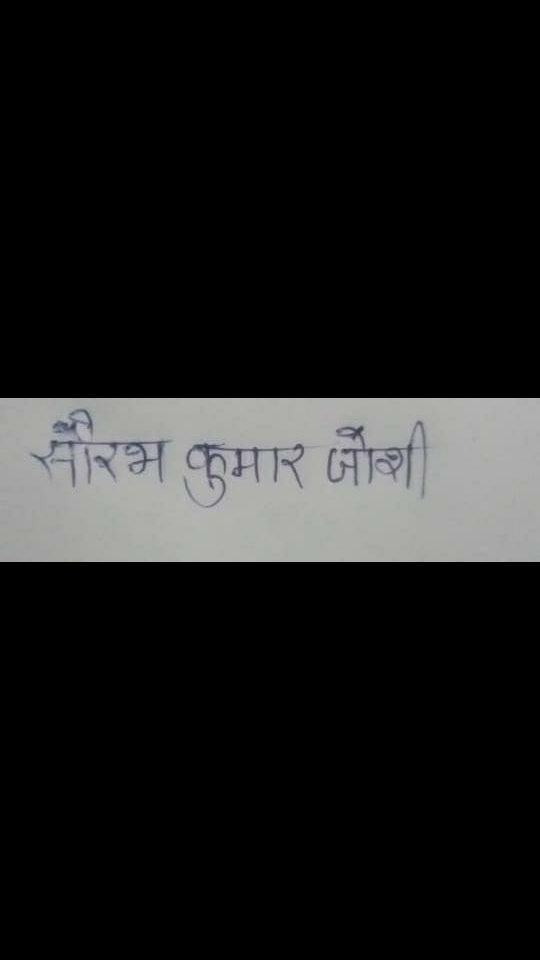 सौरभ कुमार जोशी